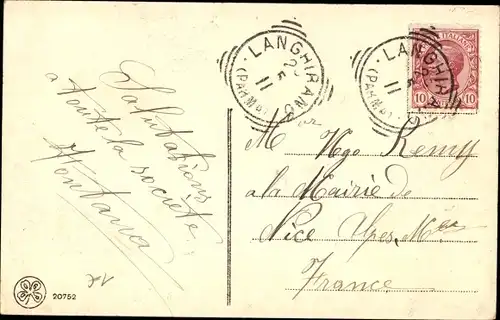 Salutations
a toute la société
Fontana
20752
LANGHIRANO
(PARMA)
25
5
11
LANGHIRANO
(PARMA)
25
5
11
10 10
Mr Ugo Remy
à la Mairie de
Nice Alpes Mmes
France